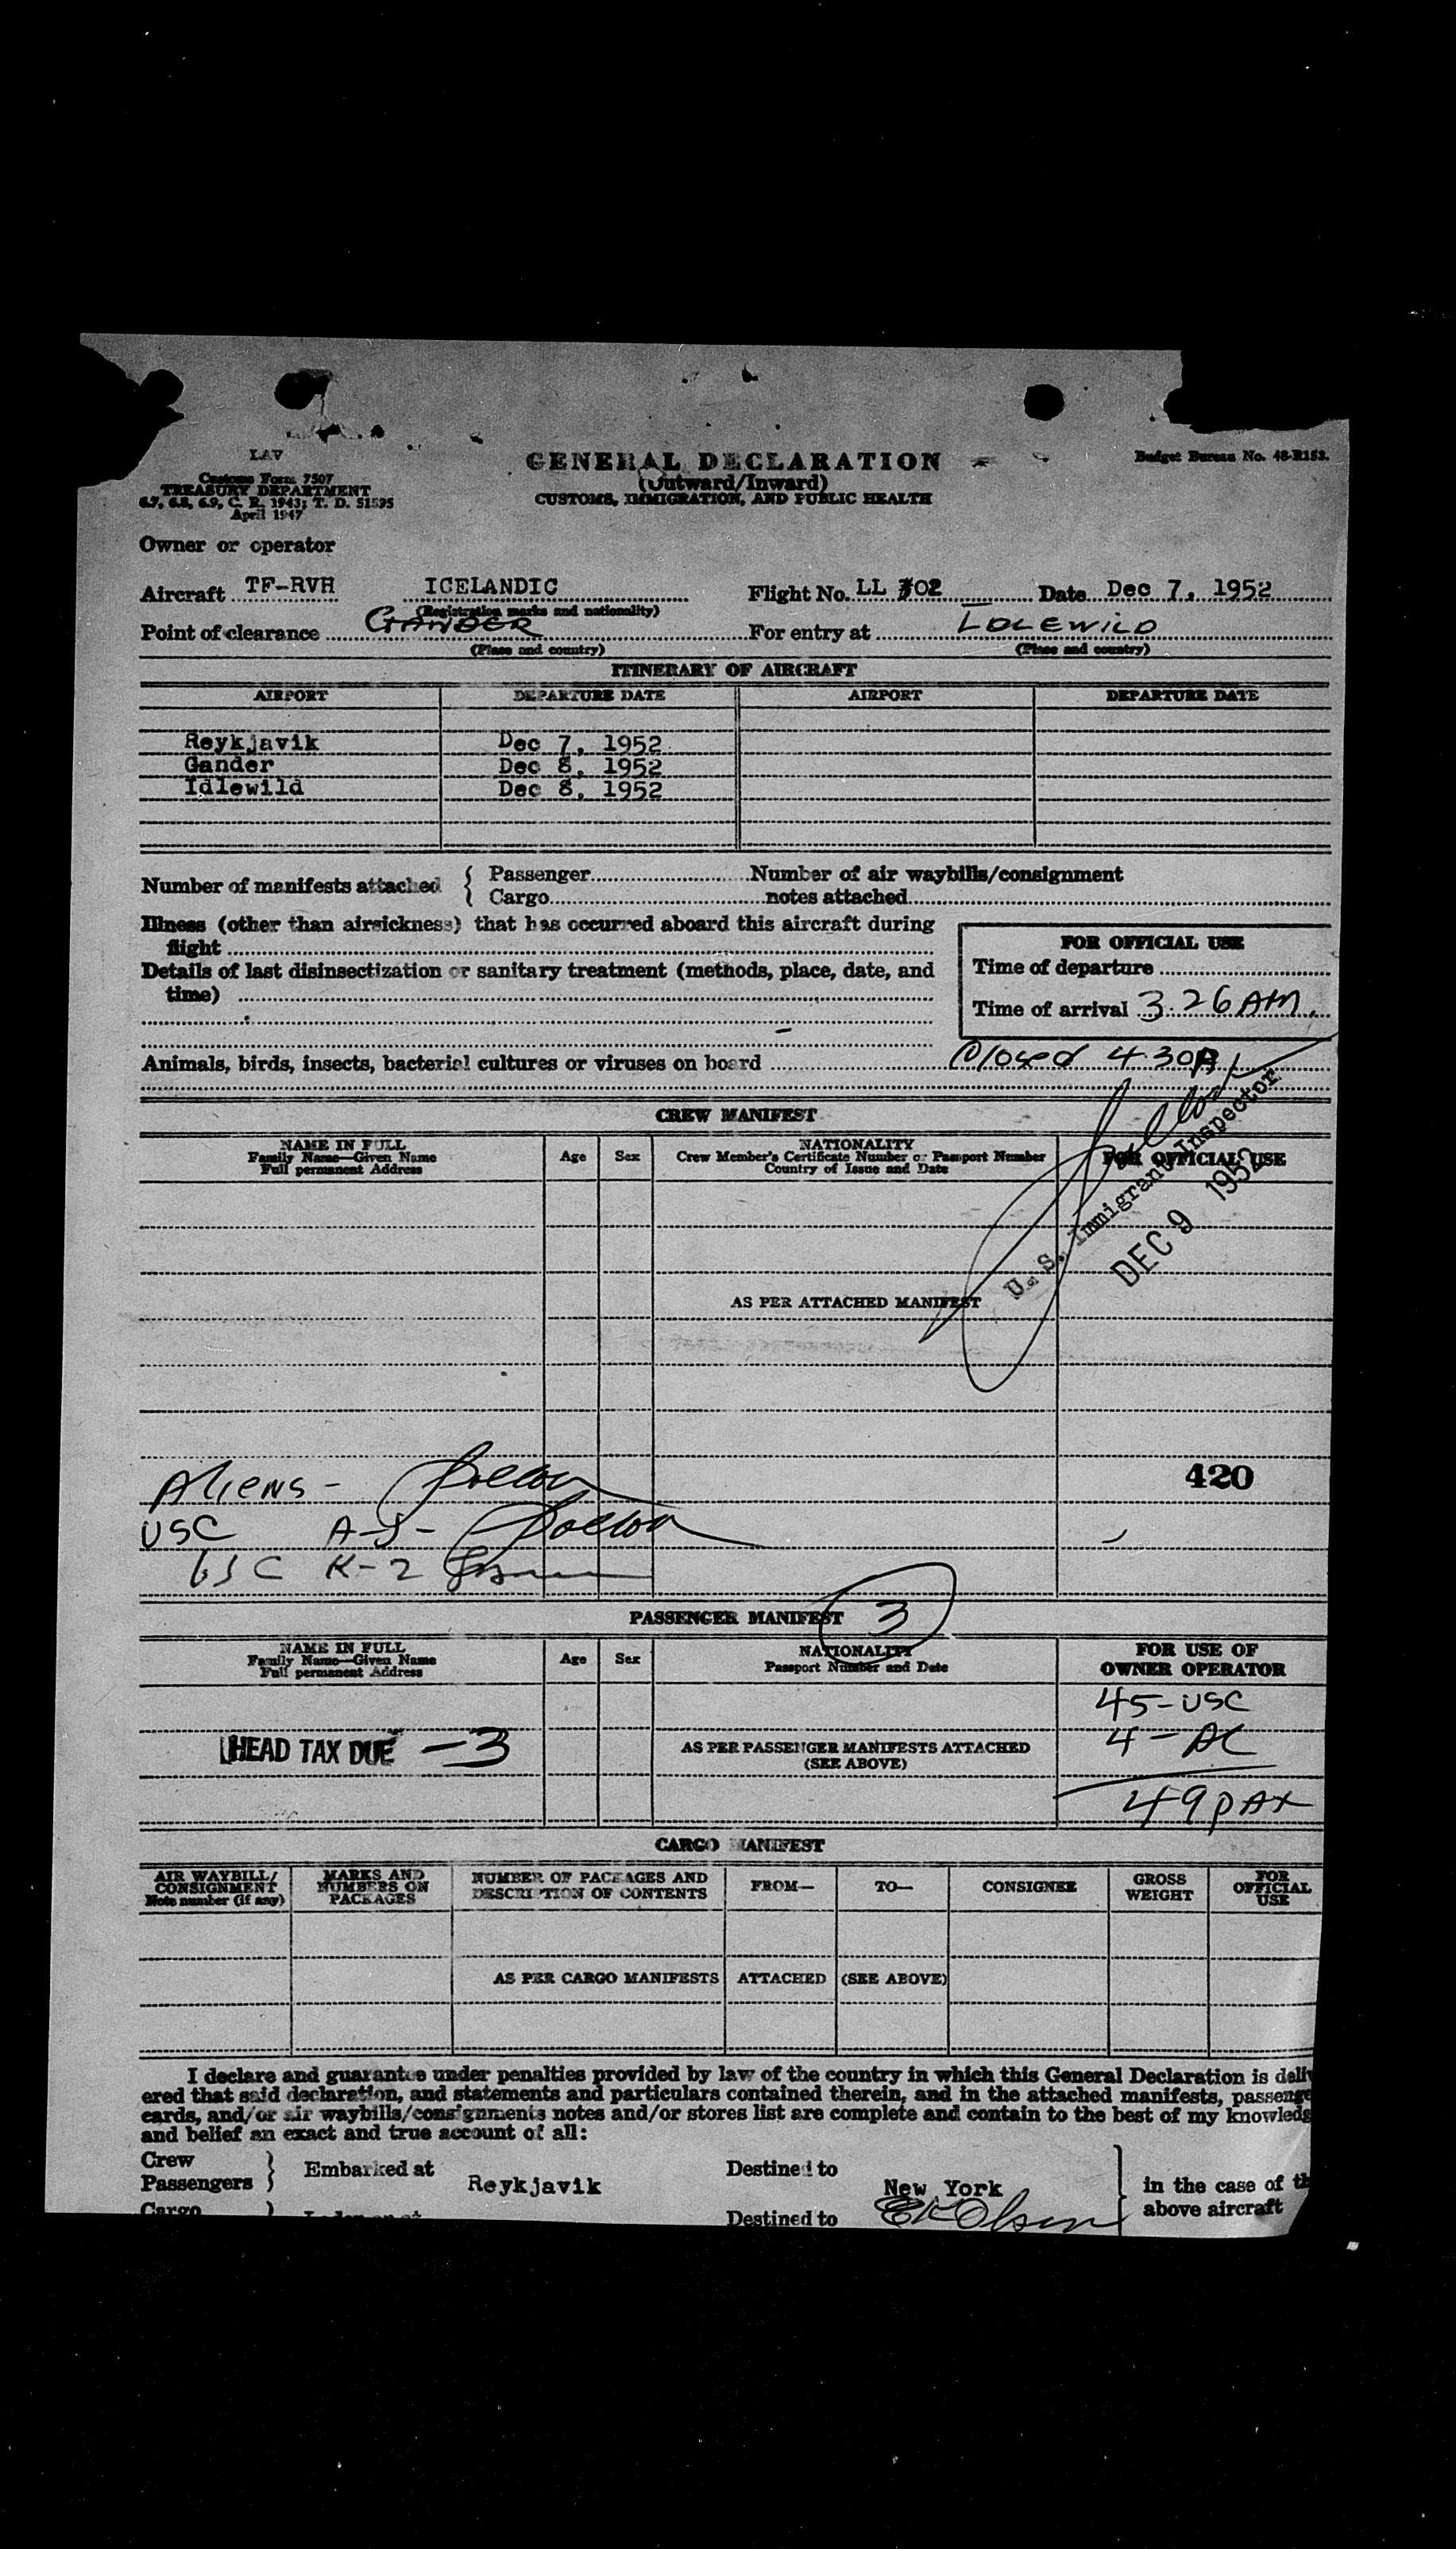 LAV
Customs Form 7507
TREASURY DEPARTMENT
6.7, 6.8, 6.9, C. R. 1943; T. D. 51595
April 1947
GENERAL DECLARATION
(Outward/Inward)
CUSTOMS, IMMIGRATION, AND PUBLIC HEALTH
Budget Bureau No. 48-R153.
Owner or operator
Aircraft TF-RVH ICELANDIC Flight No. LL 302 Date Dec 7, 1952
(Registration marks and nationality)
Point of clearance GANDER For entry at IDLEWILD
(Place and country) (Place and country)
ITINERARY OF AIRCRAFT
AIRPORT DEPARTURE DATE AIRPORT DEPARTURE DATE
Reykjavik Dec 7, 1952
Gander Dec 8, 1952
Idlewild Dec 8, 1952
Number of manifests attached { Passenger Number of air waybills/consignment
Cargo notes attached
Illness (other than airsickness) that has occurred aboard this aircraft during
flight
FOR OFFICIAL USE
Details of last disinsectization or sanitary treatment (methods, place, date, and
time)
Time of departure
Time of arrival 3:26 AM.
Animals, birds, insects, bacterial cultures or viruses on board Closed 4:30A
CREW MANIFEST
NAME IN FULL
Family Name—Given Name
Full permanent Address
Age Sex
NATIONALITY
Crew Member's Certificate Number or Passport Number
Country of Issue and Date
FOR OFFICIAL USE
U. S. Immigrant Inspector
DEC 9 1952
AS PER ATTACHED MANIFEST
Aliens -
420
USC A-J-
USC K-2
PASSENGER MANIFEST 3
NAME IN FULL
Family Name—Given Name
Full permanent Address
Age Sex
NATIONALITY
Passport Number and Date
FOR USE OF
OWNER OPERATOR
45-USC
HEAD TAX DUE -3
AS PER PASSENGER MANIFESTS ATTACHED
(SEE ABOVE)
4-AC
49 PAX
CARGO MANIFEST
AIR WAYBILL/
CONSIGNMENT
Note number (if any)
MARKS AND
NUMBERS ON
PACKAGES
NUMBER OF PACKAGES AND
DESCRIPTION OF CONTENTS
FROM— TO— CONSIGNEE
GROSS
WEIGHT
FOR
OFFICIAL
USE
AS PER CARGO MANIFESTS ATTACHED (SEE ABOVE)
I declare and guarantee under penalties provided by law of the country in which this General Declaration is deliv
ered that said declaration, and statements and particulars contained therein, and in the attached manifests, passenge
cards, and/or air waybills/consignments notes and/or stores list are complete and contain to the best of my knowledg
and belief an exact and true account of all:
Crew
Passengers } Embarked at Reykjavik Destined to New York } in the case of th
above aircraft
Cargo ) Destined to EKOlsen